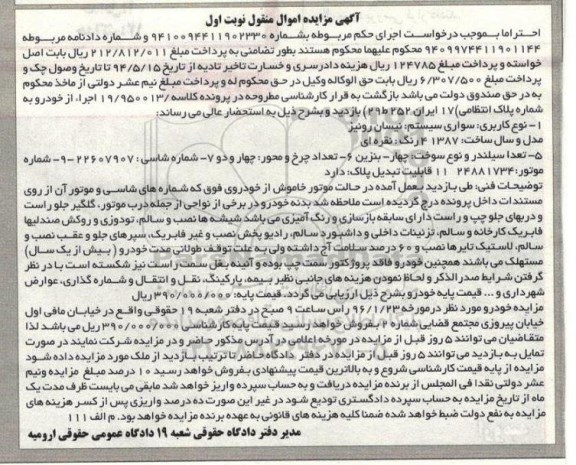 آگهی مزایده اموال منقول نوبت اول
احتراما بموجب درخواست اجرای حکم مربوطه بشماره 9410094411902330 و شماره دادنامه مربوطه
9409974411901144 محکوم علیهما محکوم هستند بطور تضامنی به پرداخت مبلغ 212/812/011 ریال بابت اصل
خواسته و پرداخت مبلغ 124785 ریال هزینه دادرسری و خسارت تاخیر تادیه از تاریخ 94/5/15 تا تاریخ وصول چک و
پرداخت مبلغ 6/307/500 ریال بابت حق الوکاله وکیل در حق محکوم له و پرداخت مبلغ نیم عشر دولتی از ماخذ محکوم
به در حق صندوق دولت می باشد بازگشت به قرار کارشناسی مطروحه در پرونده کلاسه 19/950013 اجرا، از خودرو به
شماره پلاک انتظامی)17 ایران 252ص29) بازدید و بشرح ذیل به استحضار عالی می رساند:
1- نوع کاربری: سواری سیستم: نیسان رونیز
مدل و سال ساخت: 1387 4 رنگ: نقره ای
5- تعدا سیلندر و نوع سوخت: چهار- بنزین 6- تعداد چرخ و محور: چهار و دو 7- شماره شاسی: 22607907 -9- شماره
موتور: 24881734 11 قابلیت تبدیل پلاک: دارد
توضیحات فنی: طی بازدید بعمل آمده در حالت موتور خاموش از خودروی فوق که شماره های شاسی و موتور آن از روی
مستندات داخل پرونده درج گردیده است ملاحظه شد بدنه خودرو در برخی از نواحی از جمله درب موتور، گلگیر جلو راست
و دربهای جلو چپ و راست دارای سابقه بازسازی و رنگ آمیزی می باشد شیشه ها نصب و سالم، تودوزی و روکش صندلیها
فابریک کارخانه و سالم، تزئینات داخلی و داشبورد سالم، رادیو پخش نصب و غیر فابریک، سپرهای جلو و عقب نصب و
سالم، لاستیک تایرها نصب و 60 درصد سلامت آج داشته ولی به علت توقف طولانی مدت خودرو ( بیش از یک سال)
مستهلک می باشند همچنین خودرو فاقد پروژکتور سمت چپ بوده و آئینه بغل سمت راست نیز شکسته است با در نظر
گرفتن شرایط صدر الذکر و لحاظ نمودن هزینه های جانبی نظیر بیمه، پارکینگ، نقل و انتقال و شماره گذاری، عوارض
شهرداری و ... قیمت پایه خودرو بشرح ذیل ارزیابی می گردد. قیمت پایه: 390/000/000 ریال
مزایده خودرو مورد نظر در مورخه 96/1/23 راس ساعت 9 صبح در دفتر شعبه 19 حقوقی واقع در خیابان مافی اول
خیابان پیروزی مجتمع قضایی شماره 2 بفروش خواهد رسید قیمت پایه کارشناسی 390/000/000 ریال می باشد لذا
متقاضیان می توانند 5 روز قبل از مزایده در مورخه اعلامی در آدرس مذکور حاضر و در مزایده شرکت نمایند در صورت
تمایل به بازدید می توانند 5 روز قبل از مزایده در دفتر دادگاه حاضر تا ترتیب بازدید از ملک مورد مزایده داده شود
مزایده از پایه قیمت کارشناسی شروع و به بالاترین قیمت پیشنهادی بفروش خواهد رسید 10 درصد مبلغ مزایده ونیم
عشر دولتی نقدا فی المجلس از برنده مزایده دریافت و به حساب سپرده واریز خواهد شد مابقی می بایست ظرف مدت یک
ماه از تاریخ مزایده به حساب سپرده دادگستری تودیع شود در غیر این صورت ده درصد واریزی پس از کسر هزینه های
مزایده به نفع دولت ضبط خواهد شده ضمنا کلیه هزینه های قانونی به عهده برنده مزایده خواهد بود. م الف 111
مدیر دفتر دادگاه حقوقی شعبه 19 دادگاه عمومی حقوقی ارومیه